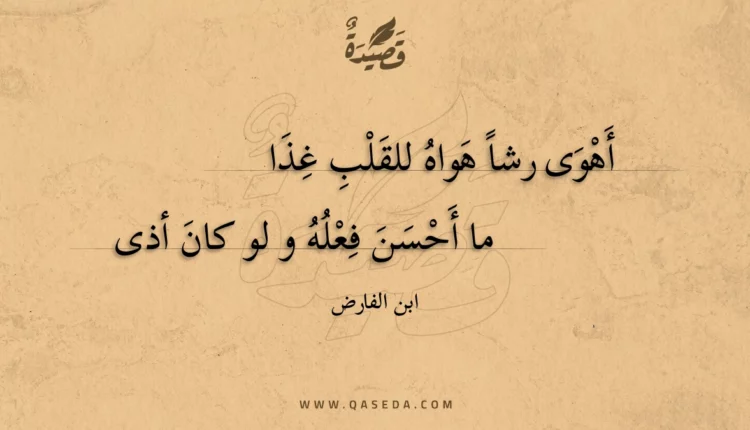 قَصِيْدَةٌ
أَهْوَى رشاً هَواهُ للقَلْبِ غِذَا
ما أَحْسَنَ فِعْلُهُ و لو كانَ أذى
ابن الفارض
WWW.QASEDA.COM